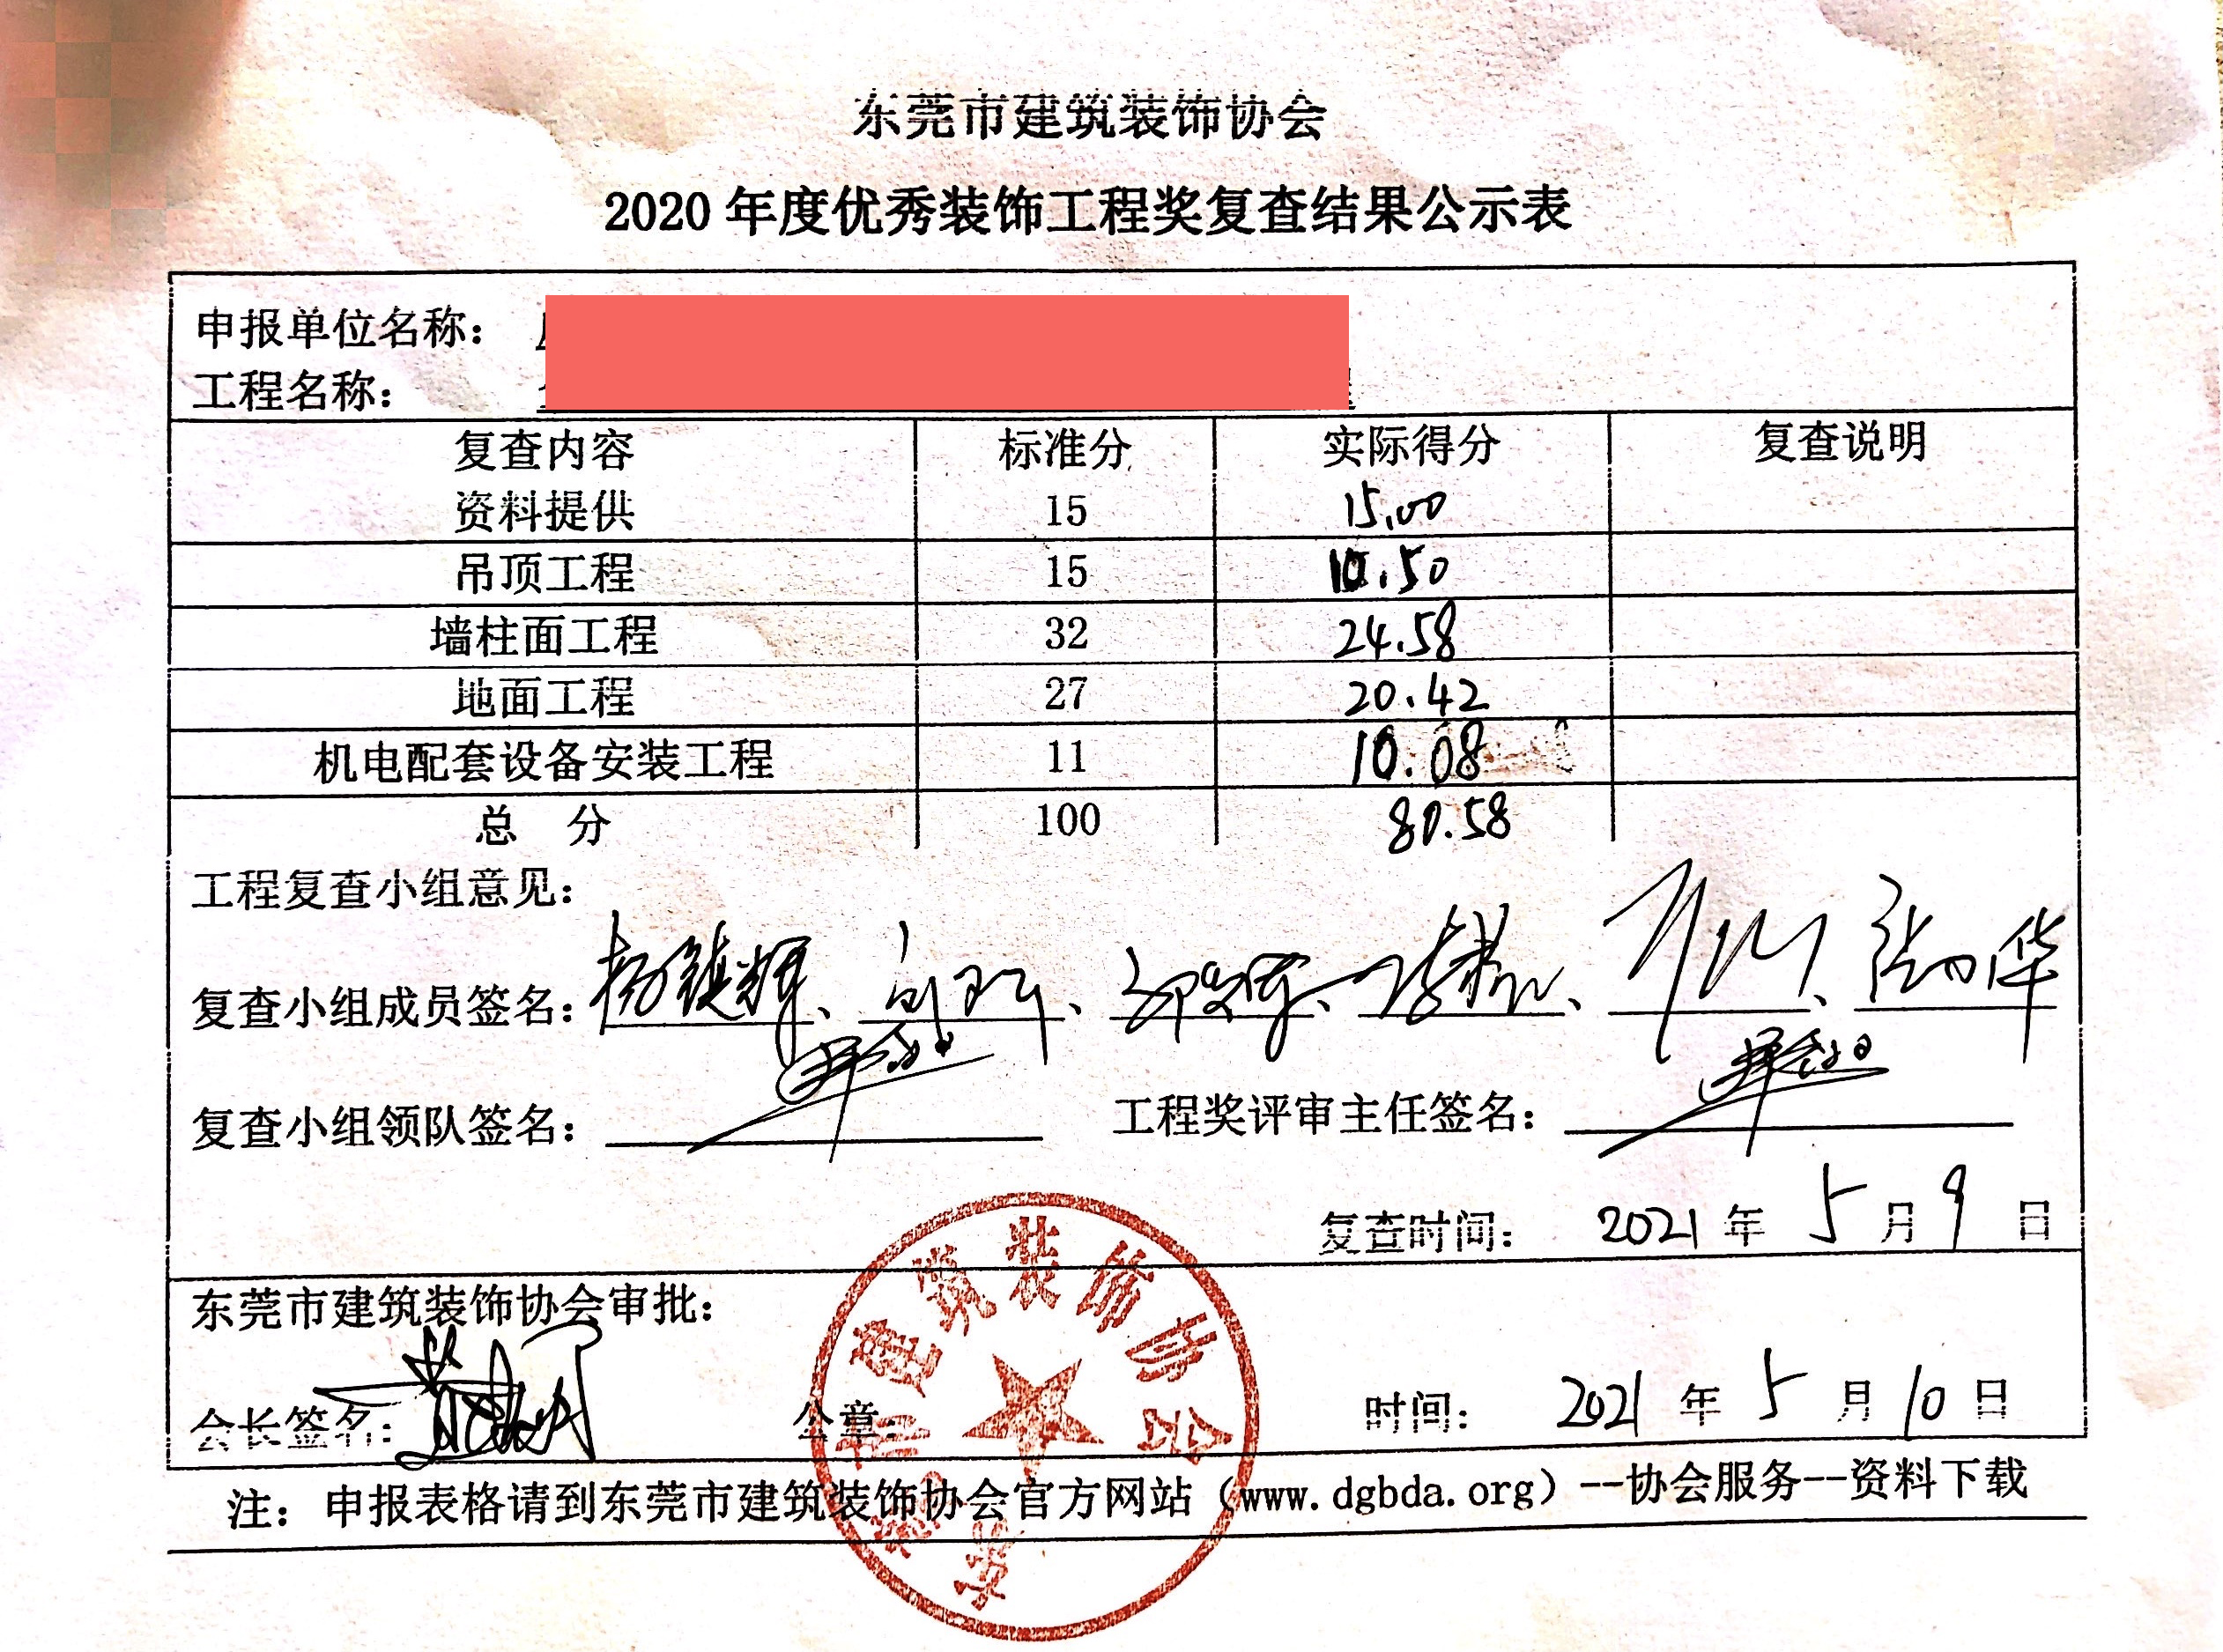 东莞市建筑装饰协会
2020 年度优秀装饰工程奖复查结果公示表
申报单位名称：
工程名称：
复查内容 标准分 实际得分 复查说明
资料提供 15 15.00
吊顶工程 15 10.50
墙柱面工程 32 24.58
地面工程 27 20.42
机电配套设备安装工程 11 10.08
总 分 100 80.58
工程复查小组意见：
复查小组成员签名：
复查小组领队签名： 工程奖评审主任签名：
复查时间： 2021 年 5 月 9 日
东莞市建筑装饰协会审批：
会长签名： 公章： 时间： 2021 年 5 月 10 日
东莞市建筑装饰协会
注：申报表格请到东莞市建筑装饰协会官方网站（www.dgbda.org）--协会服务--资料下载